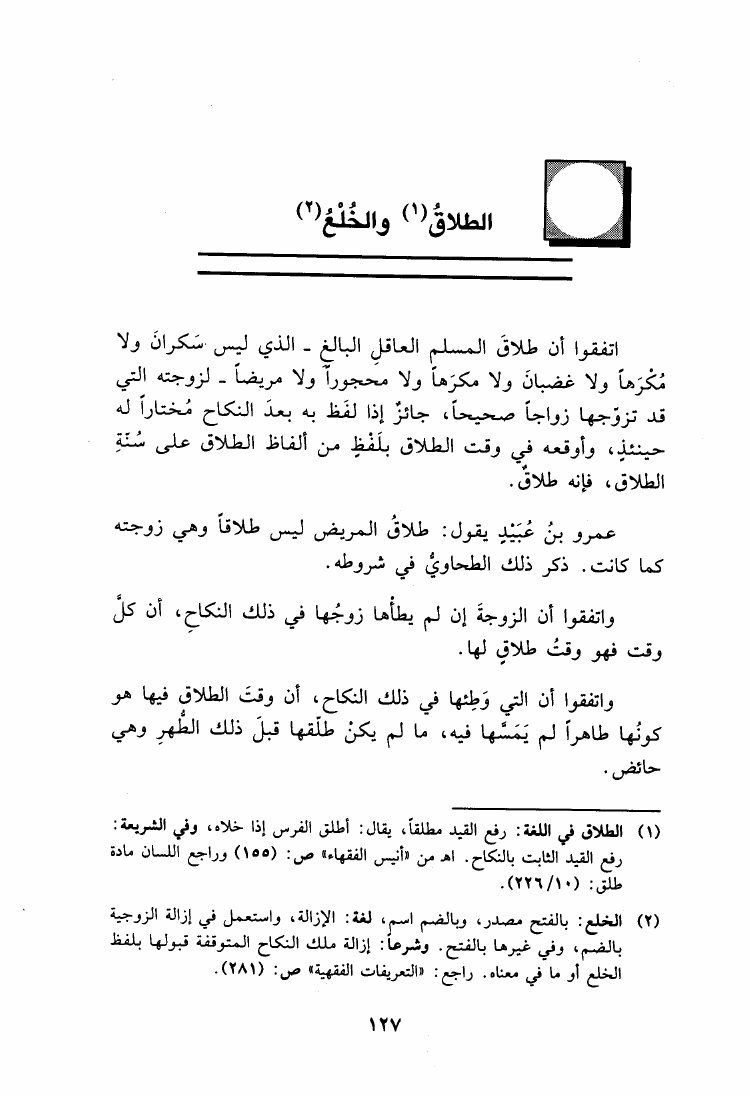 الطلاقُ(١) والخُلْعُ(٢)
اتفقوا أن طلاقَ المسلم العاقلِ البالغِ - الذي ليس سَكرانَ ولا
مُكْرَهاً ولا غضبانَ ولا مكرَهاً ولا محجوراً ولا مريضاً - لزوجته التي
قد تزوّجها زواجاً صحيحاً، جائزٌ إذا لفَظ به بعدَ النكاح مُختاراً له
حينئذٍ، وأوقعه في وقت الطلاق بلَفْظٍ من ألفاظ الطلاق على سُنّةِ
الطلاق، فإنه طلاقٌ.
عمرو بنُ عُبَيْدٍ يقول: طلاقُ المريض ليس طلاقاً وهي زوجته
كما كانت. ذكر ذلك الطحاويُّ في شروطه.
واتفقوا أن الزوجةَ إن لم يطأها زوجُها في ذلك النكاحِ، أن كلَّ
وقت فهو وقتُ طلاقٍ لها.
واتفقوا أن التي وَطِئها في ذلك النكاح، أن وقتَ الطلاق فيها هو
كونُها طاهراً لم يَمَسَّها فيه، ما لم يكنْ طلّقها قبلَ ذلك الطُّهرِ وهي
حائض.
(١) الطلاق في اللغة: رفع القيد مطلقاً، يقال: أطلق الفرس إذا خلاه، وفي الشريعة:
رفع القيد الثابت بالنكاح. اهـ من «أنيس الفقهاء» ص: (١٥٥) وراجع اللسان مادة
طلق: (٢٢٦/١٠).
(٢) الخلع: بالفتح مصدر، وبالضم اسم، لغة: الإزالة، واستعمل في إزالة الزوجية
بالضم، وفي غيرها بالفتح. وشرعاً: إزالة ملك النكاح المتوقفة قبولها بلفظ
الخلع أو ما في معناه. راجع: «التعريفات الفقهية» ص: (٢٨١).
١٢٧